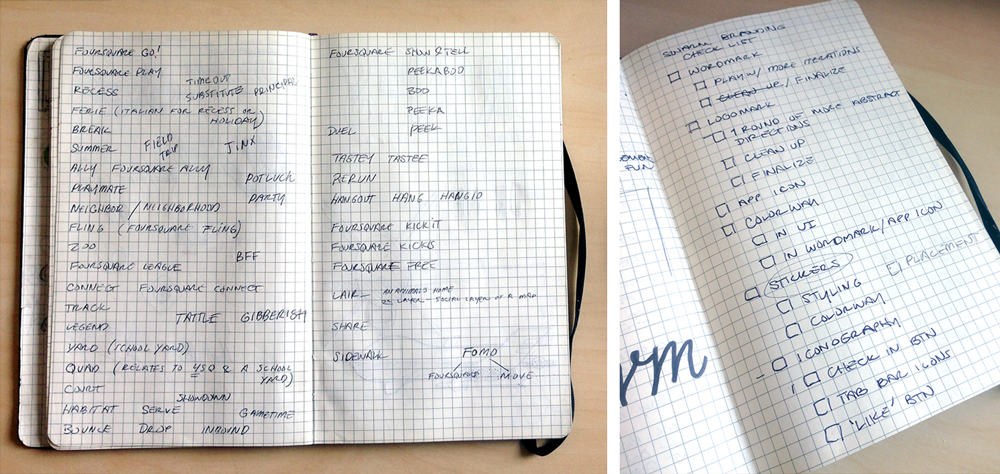 FOURSQUARE GO!
FOURSQUARE PLAY
TIMEOUT
RECESS
SUBSTITUTE PRINCIPAL
FERIE (ITALIAN FOR RECESS OR
HOLIDAY)
BREAK
SUMMER
FIELD
TRIP
JINX
ALLY FOURSQUARE ALLY
POTLUCK
PLAYMATE
PARTY
NEIGHBOR / NEIGHBORHOOD
FLING (FOURSQUARE FLING)
ZOO
BFF
FOURSQUARE LEAGUE
CONNECT FOURSQUARE CONNECT
TRACK
TATTLE GIBBERISH
LEGEND
YARD (SCHOOL YARD)
QUAD (RELATES TO 4SQ & A SCHOOL
YARD)
COURT
SHOWDOWN
HABITAT SERVE GAMETIME
BOUNCE DROP INBOUND
FOURSQUARE SHOW & TELL
PEEKABOO
BOO
PEEKA
DUEL PEEK
TASTEY TASTEE
RERUN
HANGOUT HANG HANGIO
FOURSQUARE KICKIT
FOURSQUARE KICKS
FOURSQUARE FREE
LAIR - AN ANIMAL'S HOME
OR LAYER - SOCIAL LAYER OF A MAP
SHARE
SIDEWALK
FOMO
FOURSQUARE MOVE
SWARM BRANDING
CHECK LIST
WORDMARK
PLAY W/ MORE ITERATIONS
CLEAN UP / FINALIZE
LOGOMARK
1 ROUND OF MORE ABSTRACT
DIRECTIONS
CLEAN UP
FINALIZE
APP ICON
COLORWAY
IN UI
IN WORDMARK/APP ICON
STICKERS
PLACEMENT
STYLING
COLORWAY
ICONOGRAPHY
CHECK IN BTN
TAB BAR ICONS
'LIKE' BTN
FUN
rm